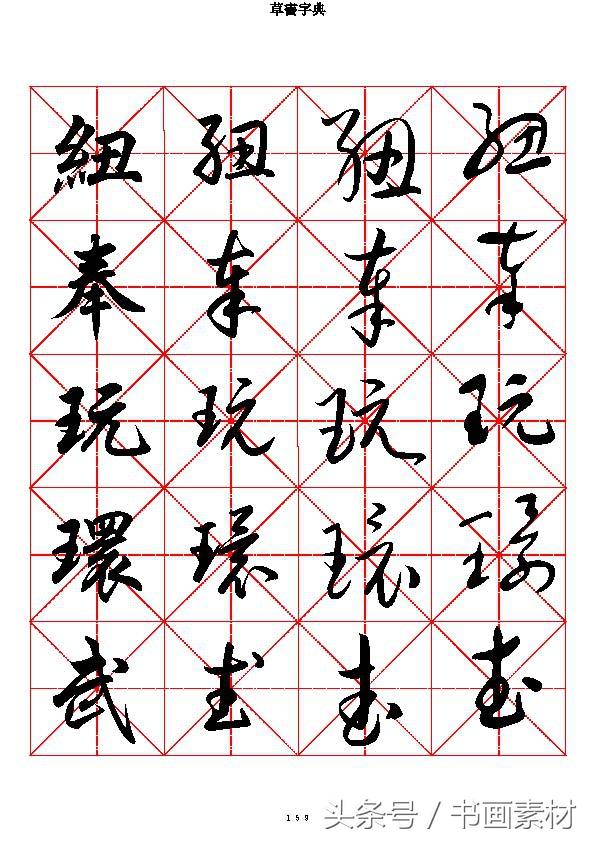 草書字典
紐 紐 紐 紐
奉 奉 奉 奉
玩 玩 玩 玩
環 環 環 環
武 武 武 武
159
头条号 / 书画素材